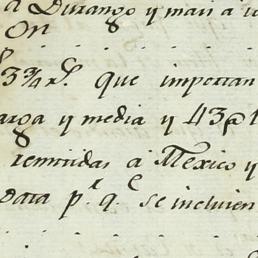 a Durango y mas a
on
3¾ r.s que importan
arga y media y 43@ 1
remitidas a Mexico y
Data p.r q.e se incluien